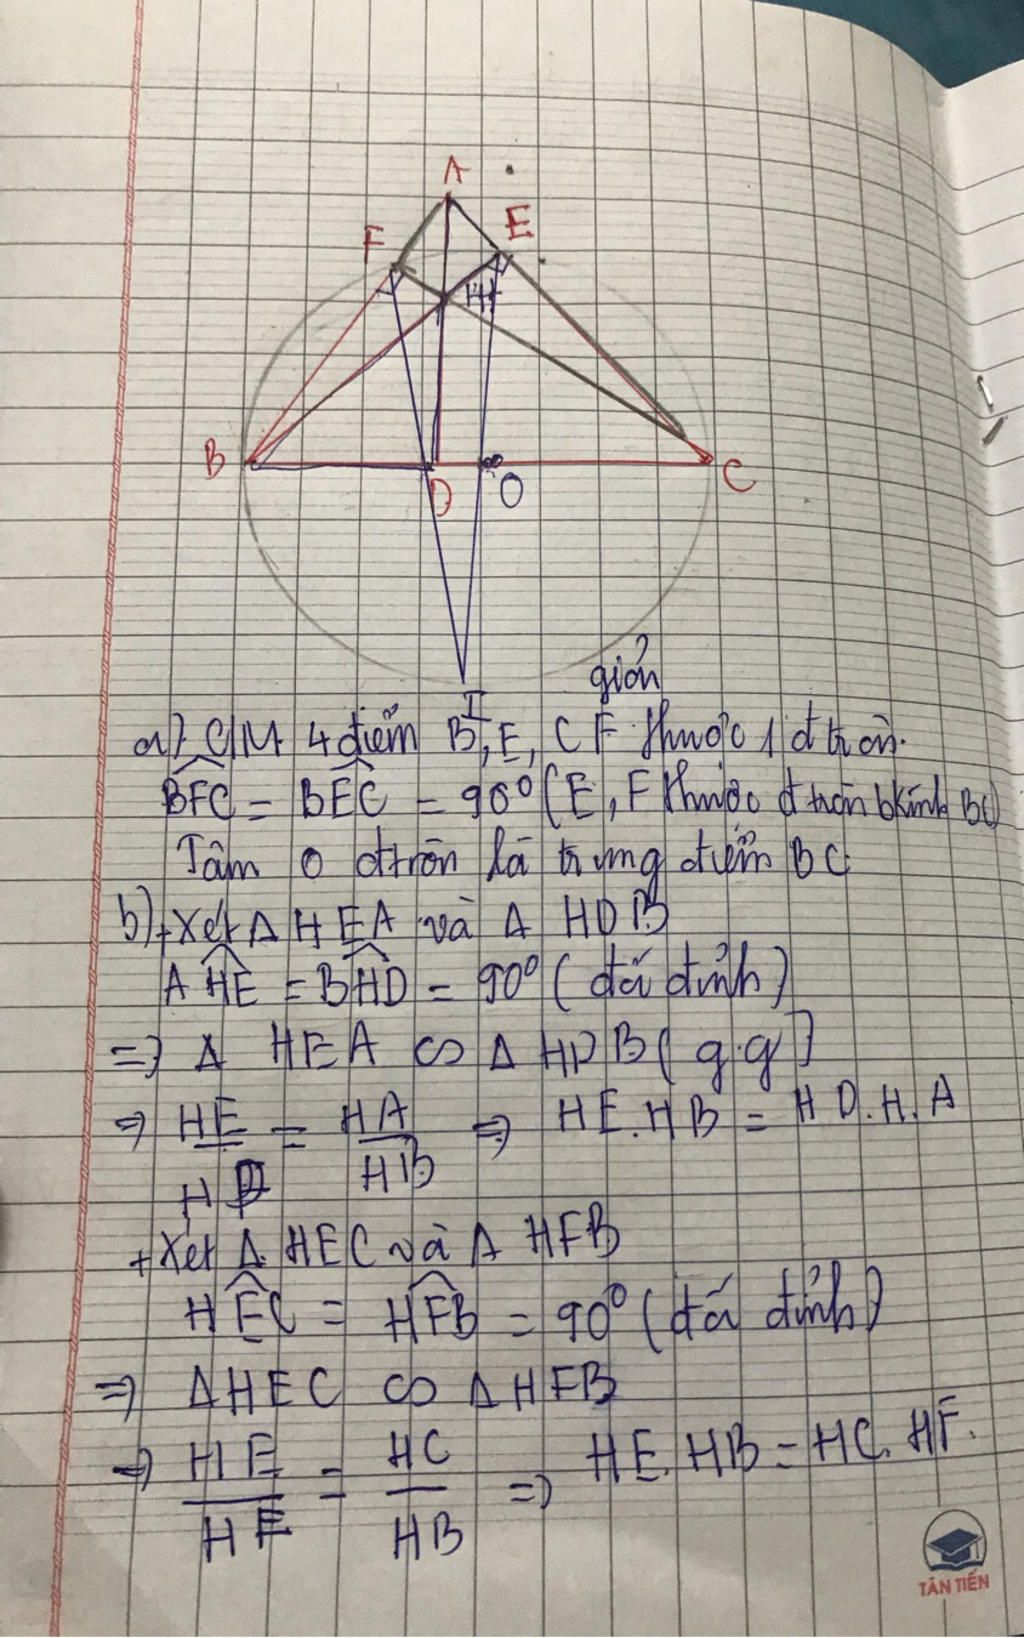 A
E
F
H
B
D
O
C
I
giản
a) C/M 4 điểm B, E, C F thuộc 1 đ tròn.
BFC = BEC = 90° (E, F thuộc đ tròn bkính BC)
Tâm O đtròn là trung điểm BC
b) + Xét Δ HEA và Δ HDB
AHE = BHD = 90° (đđ đỉnh)
=> Δ HEA ∽ Δ HDB (g.g)
=> HE/HD = HA/HB => HE.HB = HD.H.A
+ Xét Δ HEC và Δ HFB
HEC = HFB = 90° (đđ đỉnh)
=> ΔHEC ∽ ΔHFB
=> HE/HF = HC/HB => HE.HB = HC.HF.
TÂN TIẾN